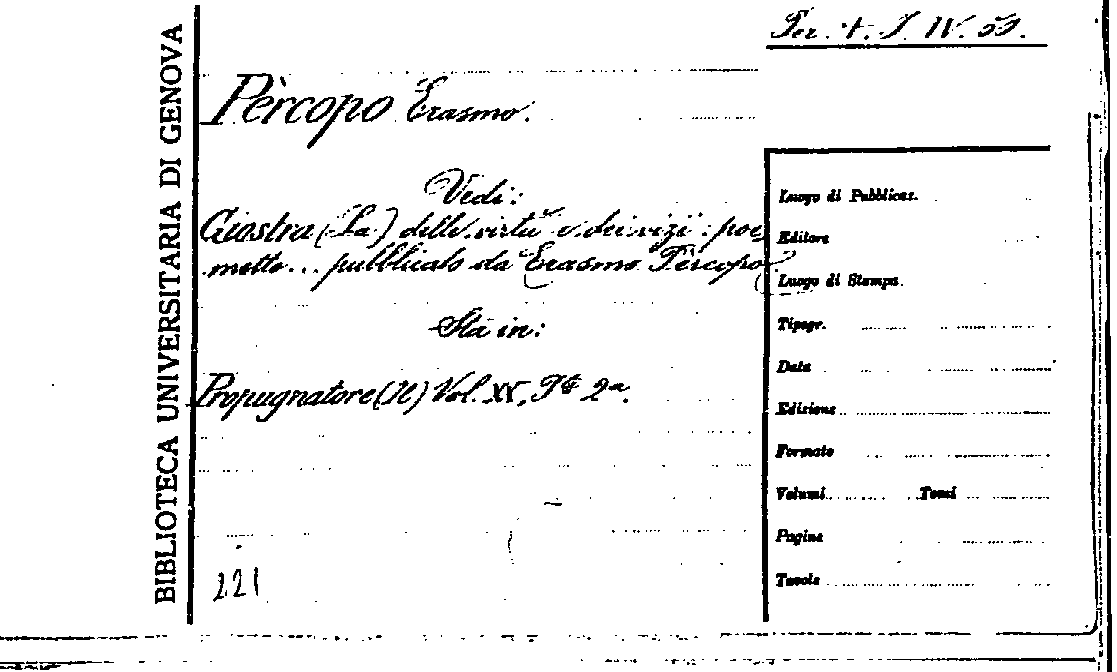 BIBLIOTECA UNIVERSITARIA DI GENOVA
Per. +. I. IV. 55.
Pèrcopo Erasmo.
Vedi:
Giostra (La) delle virtù e dei vizi: poe
metto... pubblicato da Erasmo Pèrcopo.
Sta in:
Propugnatore (Il) Vol. XX, Pte 2a.
221
Luogo di Pubblicaz.
Editore
Luogo di Stampa.
Tipogr.
Data
Edizione
Formato
Volumi Tomi
Pagine
Tavole